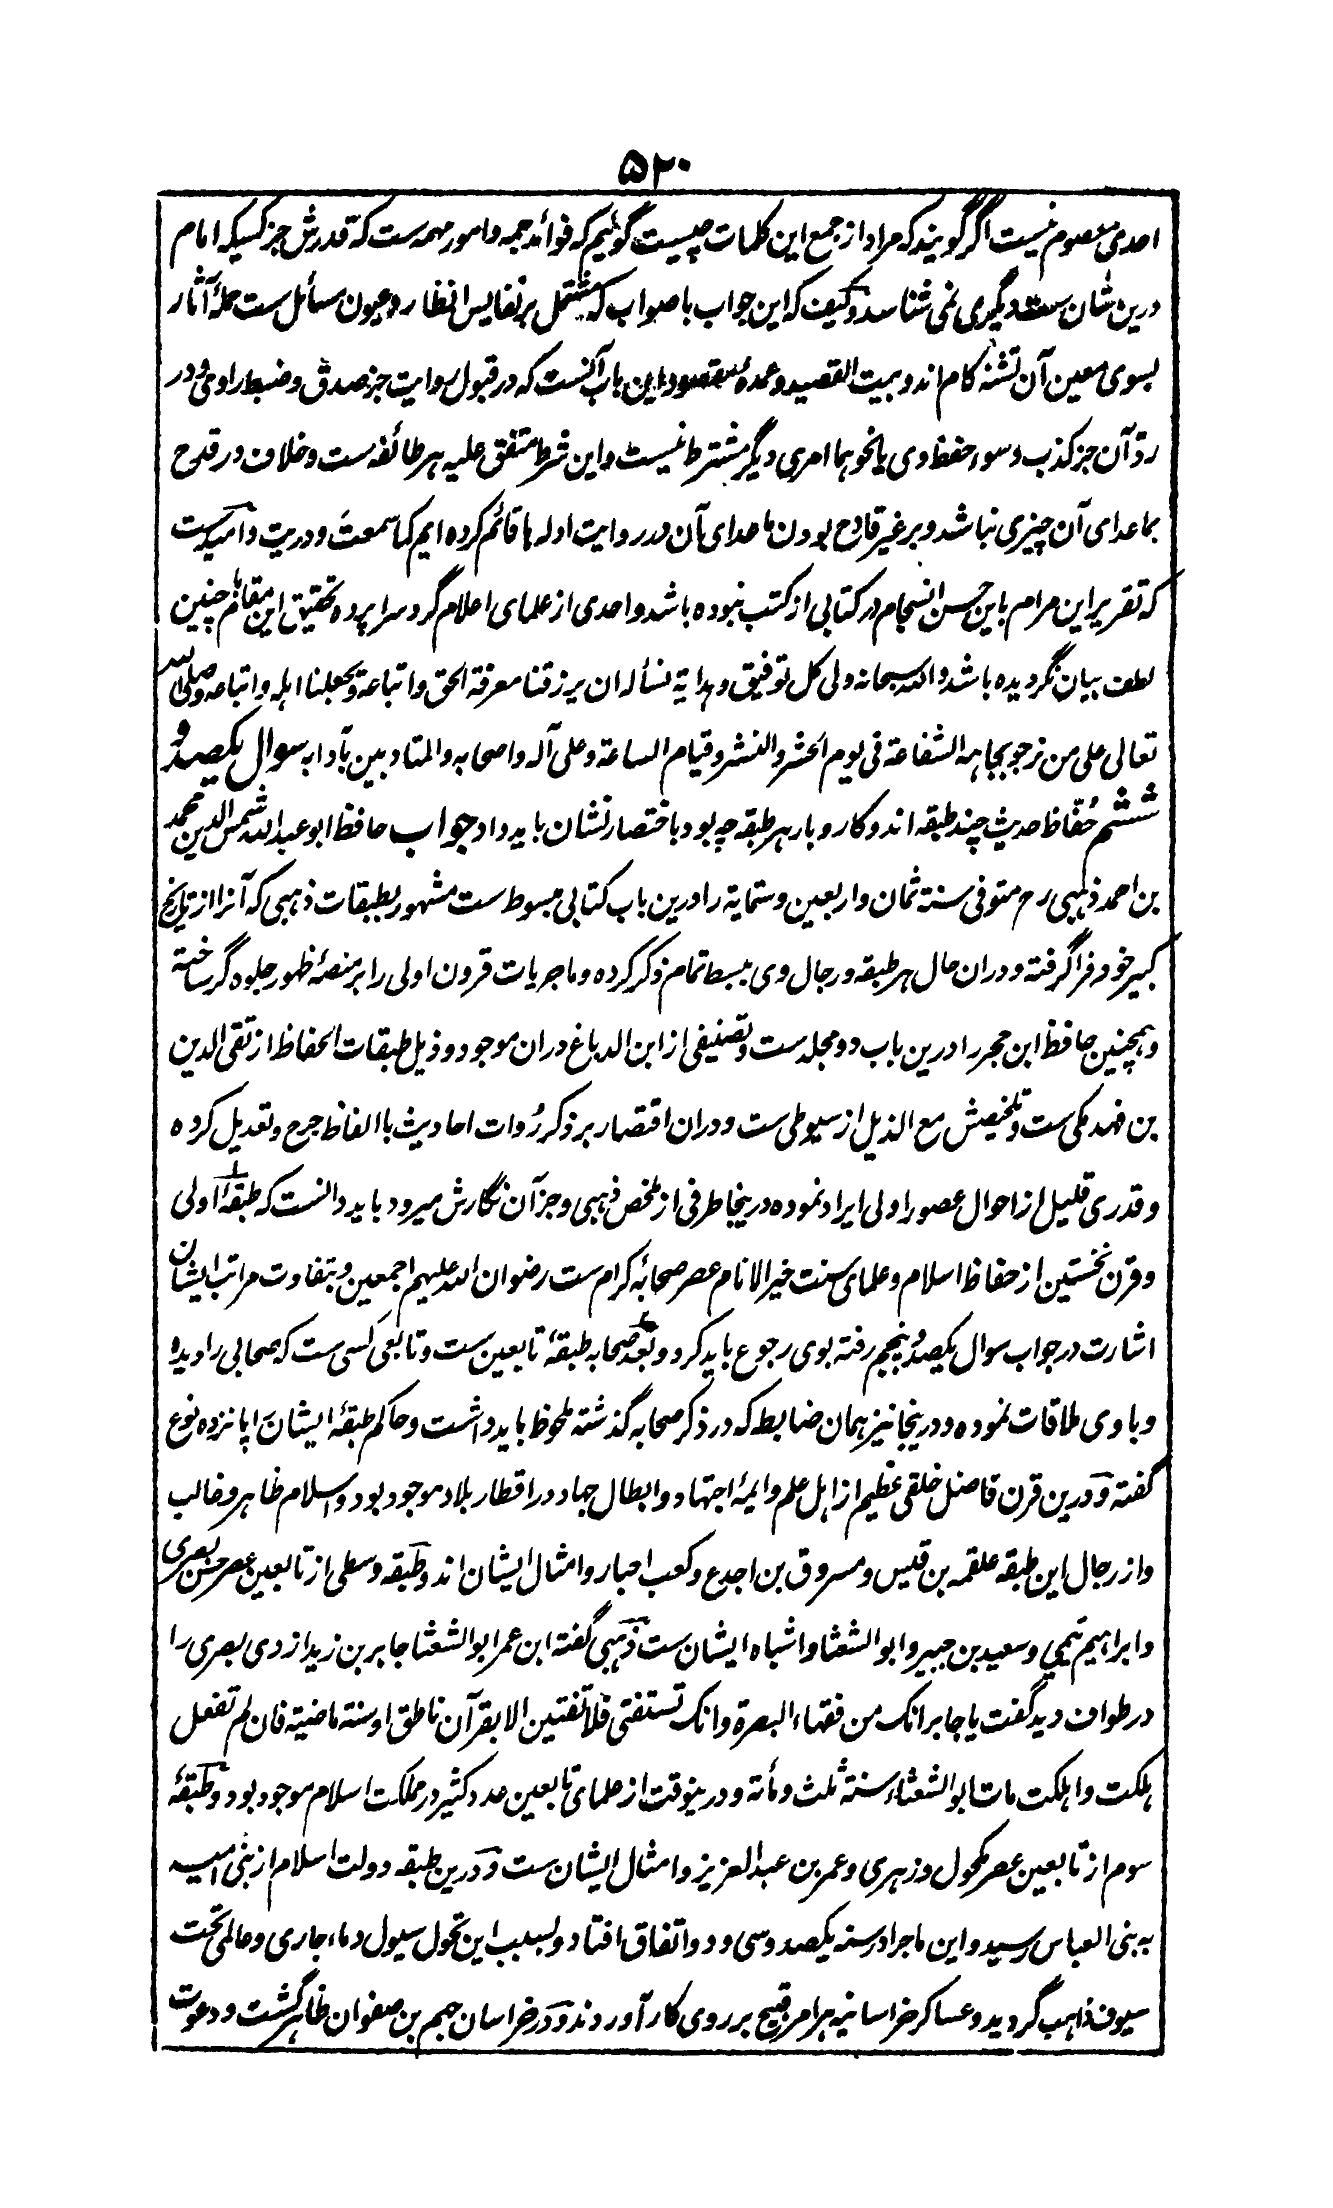 ۵۲۰
احدی معصوم نیست اگر گویند که مراد از جمع این کلمات چیست گوئیم که فوائد جمه و امور مهمه ست که قدرش جز کسیکه امام
درین شان ست دیگری نمی شناسد و کیف که این جواب با صواب که مشتمل بر نفایس انظار و عیون مسائل ست حملهٔ آثار
بسوی معین آن تشنه کام اند و بیت القصید و عمده مقصود این باب آنست که در قبول روایت جز صدق و ضبط راوی و در
ردّ آن جز کذب و سوء حفظ وی یا نحو هما امری دیگر مشترط نیست و این شرط متفق علیه هر طائفه ست و خلاف در قدح
بماعدای آن چیزی نباشد و بر غیر قادح بودن ماعدای آن در روایت ادله ها قائم کرده ایم کما سمعت و دریت و امیدست
که تقریر این مرام باین حسن انسجام در کتابی از کتب نبوده باشد و احدی از علمای اعلام گرد سراپرده تحقیق این مقام چنین
لطف بیان نگردیده باشد والله سبحانه ولی کل توفیق و هدایة نسأله ان یرزقنا معرفة الحق و اتباعه و یجعلنا اهله و اتباعه و صلی الله
تعالی علی من نرجو بجاهه الشفاعة فی یوم الحشر و النشر و قیام الساعة و علی آله و اصحابه و المتادبین بآدابه سوال یکصد و
ششم حُفّاظ حدیث چند طبقه اند و کار و بار هر طبقه چه بود باختصار نشان باید داد جواب حافظ ابو عبد الله شمس الدین محمد
بن احمد ذهبی رح متوفی سنة ثمان و اربعین و ستمایة را درین باب کتابی مبسوط ست مشهور بطبقات ذهبی که آنرا از تاریخ
کبیر خود فرا گرفته و دران حال هر طبقه و رجال وی ببسط تمام ذکر کرده و ماجریات قرون اولی را بر منصهٔ ظهور جلوه گر ساخته
و همچنین حافظ ابن حجر را درین باب دو مجلد ست و تصنیفی از ابن الدباغ دران موجود و ذیل طبقات الحفاظ از تقی الدین
بن فهد مکی ست و تلخیصش مع الذیل از سیوطی ست و دران اقتصار بر ذکر رُوات احادیث با الفاظ جرح و تعدیل کرده
و قدری قلیل از احوال عصور اولی ایراد نموده درینجا طرفی از ملخص ذهبی و جز آن نگارش میرود باید دانست که طبقهٔ اولی
و قرن نخستین از حفاظ اسلام و علمای سنت خیر الانام عصر صحابهٔ کرام ست رضوان الله علیهم اجمعین و بتفاوت مراتب ایشان
اشارت در جواب سوال یکصد و پنجم رفته بوی رجوع باید کرد و بعد صحابه طبقهٔ تابعین ست و تابعی کسی ست که صحابی را دیده
و با وی ملاقات نموده و درینجا نیز همان ضابط که در ذکر صحابه گذشته ملحوظ باید داشت و حاکم طبقهٔ ایشان را پانزده نوع
گفته و درین قرن فاضل خلقی عظیم از اهل علم و ایمهٔ اجتهاد و ابطال جهاد در اقطار بلاد موجود بود و اسلام ظاهر و غالب
و از رجال این طبقه علقمه بن قیس و مسروق بن اجدع و کعب احبار و امثال ایشان اند و طبقه وسطی از تابعین عصر حسن بصری
و ابراهیم تیمی و سعید بن جبیر و ابو الشعثا و اشباه ایشان ست ذهبی گفته ابن عمر ابو الشعثا جابر بن زید ازدی بصری را
در طواف دید گفت یا جابر انک من فقهاء البصرة و انک تستفتی فلا تفتین الا بقرآن ناطق او سنة ماضیة فان لم تفعل
هلکت و اهلکت مات ابو الشعثاء سنة ثلث و مأئة و درینوقت از علمای تابعین عدد کثیر در مملکت اسلام موجود بود و طبقهٔ
سوم از تابعین عصر مکحول و زهری و عمر بن عبد العزیز و امثال ایشان ست و درین طبقه دولت اسلام از بنی امیه
به بنی العباس رسید و این ماجرا در سنه یکصد و سی و دو اتفاق افتاد و بسبب این تحول سیول دماء جاری و عالمی تحت
سیوف ذاهب گردید و عساکر خراسانیه هر امر قبیح بر روی کار آوردند و در خراسان جهم بن صفوان ظاهر گشت و دعوت